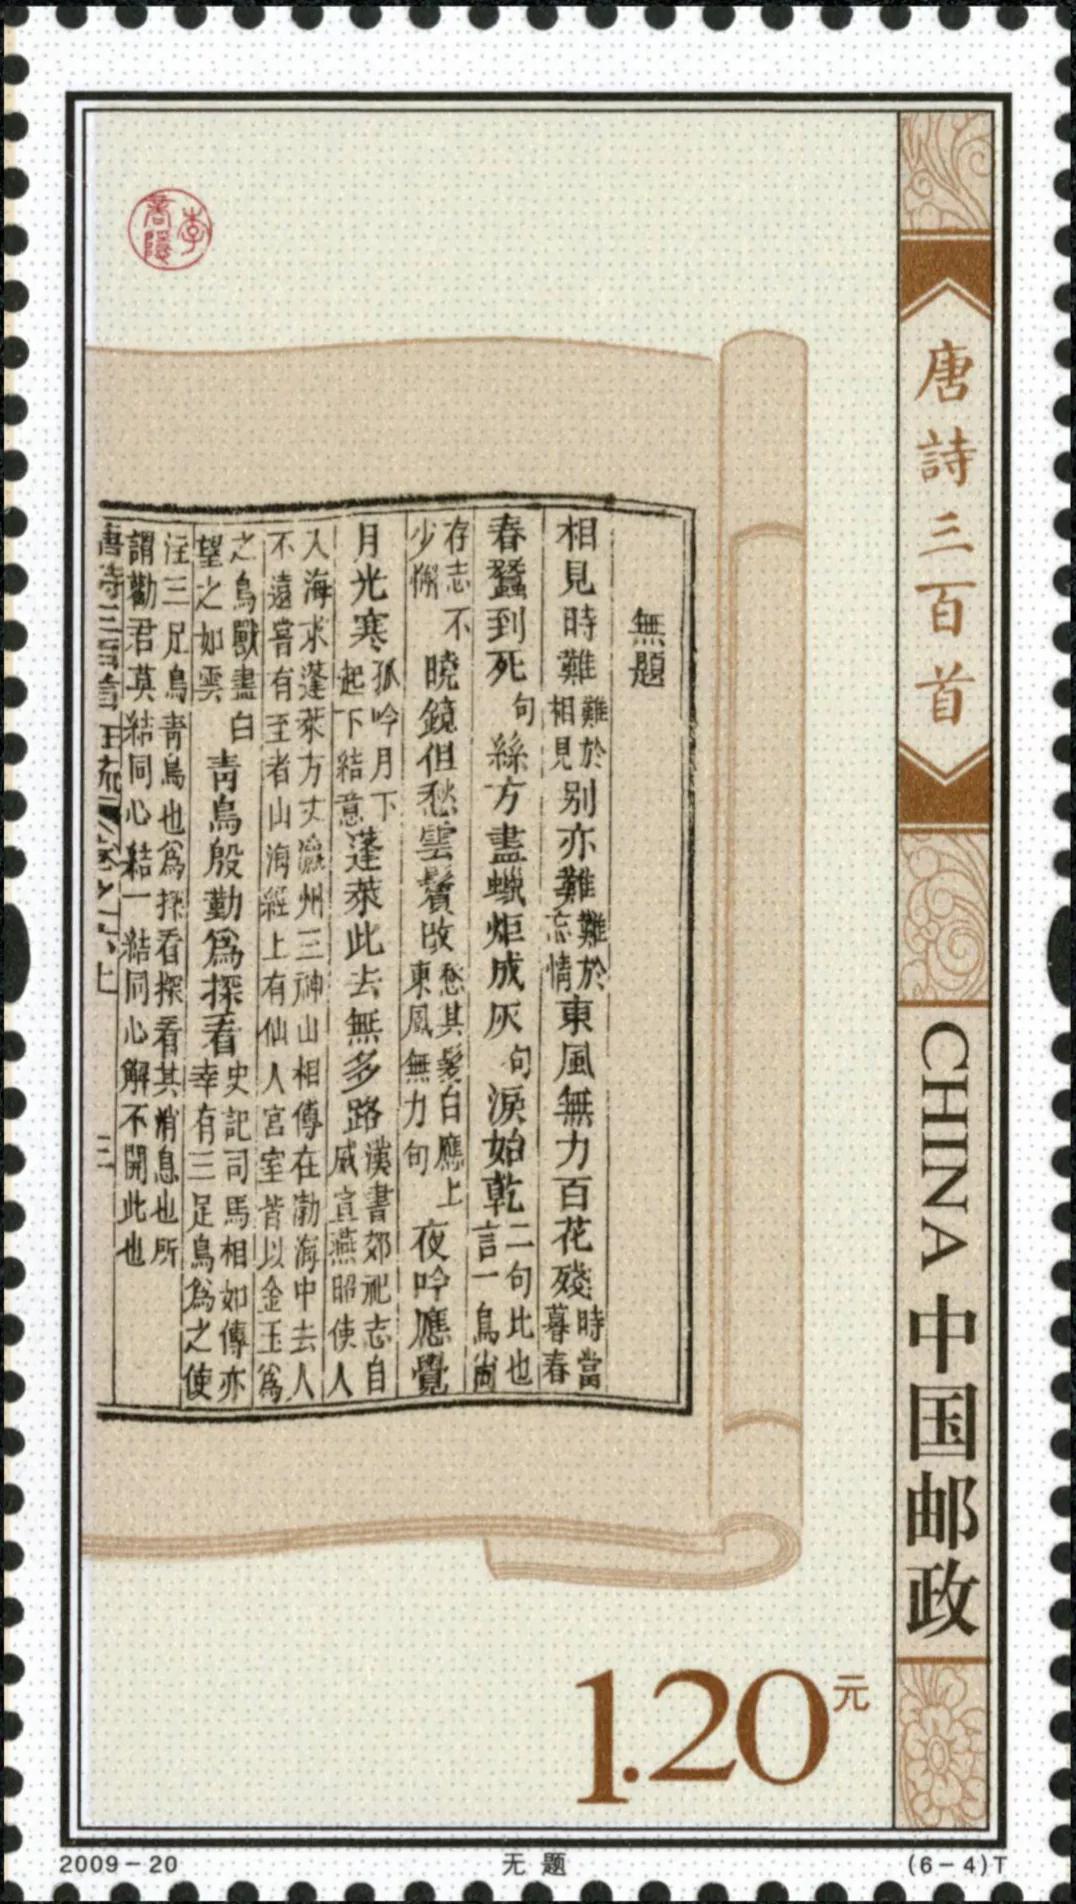 李商隱
唐詩三百首
CHINA 中国邮政
無題
相見時難難於相見別亦難難於忘情東風無力百花殘時當暮春
春蠶到死句絲方盡蠟炬成灰句淚始乾二句比也言一息尚
存志不少懈曉鏡但愁雲鬢改愁其髮白應上東風無力句夜吟應覺
月光寒孤吟月下起下結意蓬萊此去無多路漢書郊祀志自威宣燕昭使人
入海求蓬萊方丈瀛州三神山相傳在渤海中去人
不遠嘗有至者山海經上有仙人宮室皆以金玉爲
之鳥獸盡白望之如雲青鳥殷勤爲探看史記司馬相如傳亦幸有三足烏爲之使
注三足烏青鳥也爲探看探看其消息也所
謂勸君莫結同心結一結同心解不開此也
唐詩三百首注疏 卷之六上 三
1.20元
2009-20
无题
(6-4)T